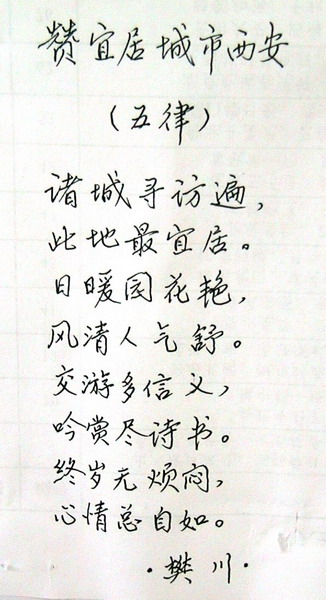 赞宜居城市西安
（五律）
诸城寻访遍，
此地最宜居。
日暖园花艳，
风清人气舒。
交游多信义，
吟赏尽诗书。
终岁无烦闷，
心情总自如。
·樊川·